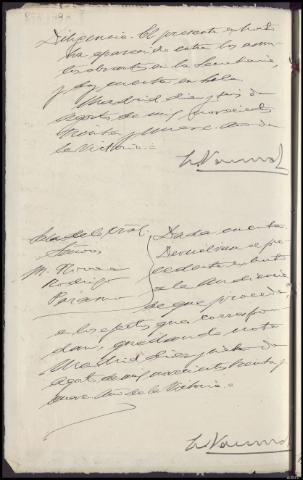 Diligencia. El presente exhorto
ha aparecido entre los asun-
tos obrantes en la Secretaría,
y doy cuenta en Sala
Madrid diez y seis de
Agosto de mil novecientos
treinta y nueve Año de
la Victoria.=
Sala de
Señores
Rodrigo
Paramo
Dada cuenta
Devuélvase el pre-
cedente exhorto
a la Audiencia
de que procede,
a los efectos que correspon-
dan, quedando nota
Madrid diez y siete de
Agosto de mil novecientos treinta y
nueve Año de la Victoria.=